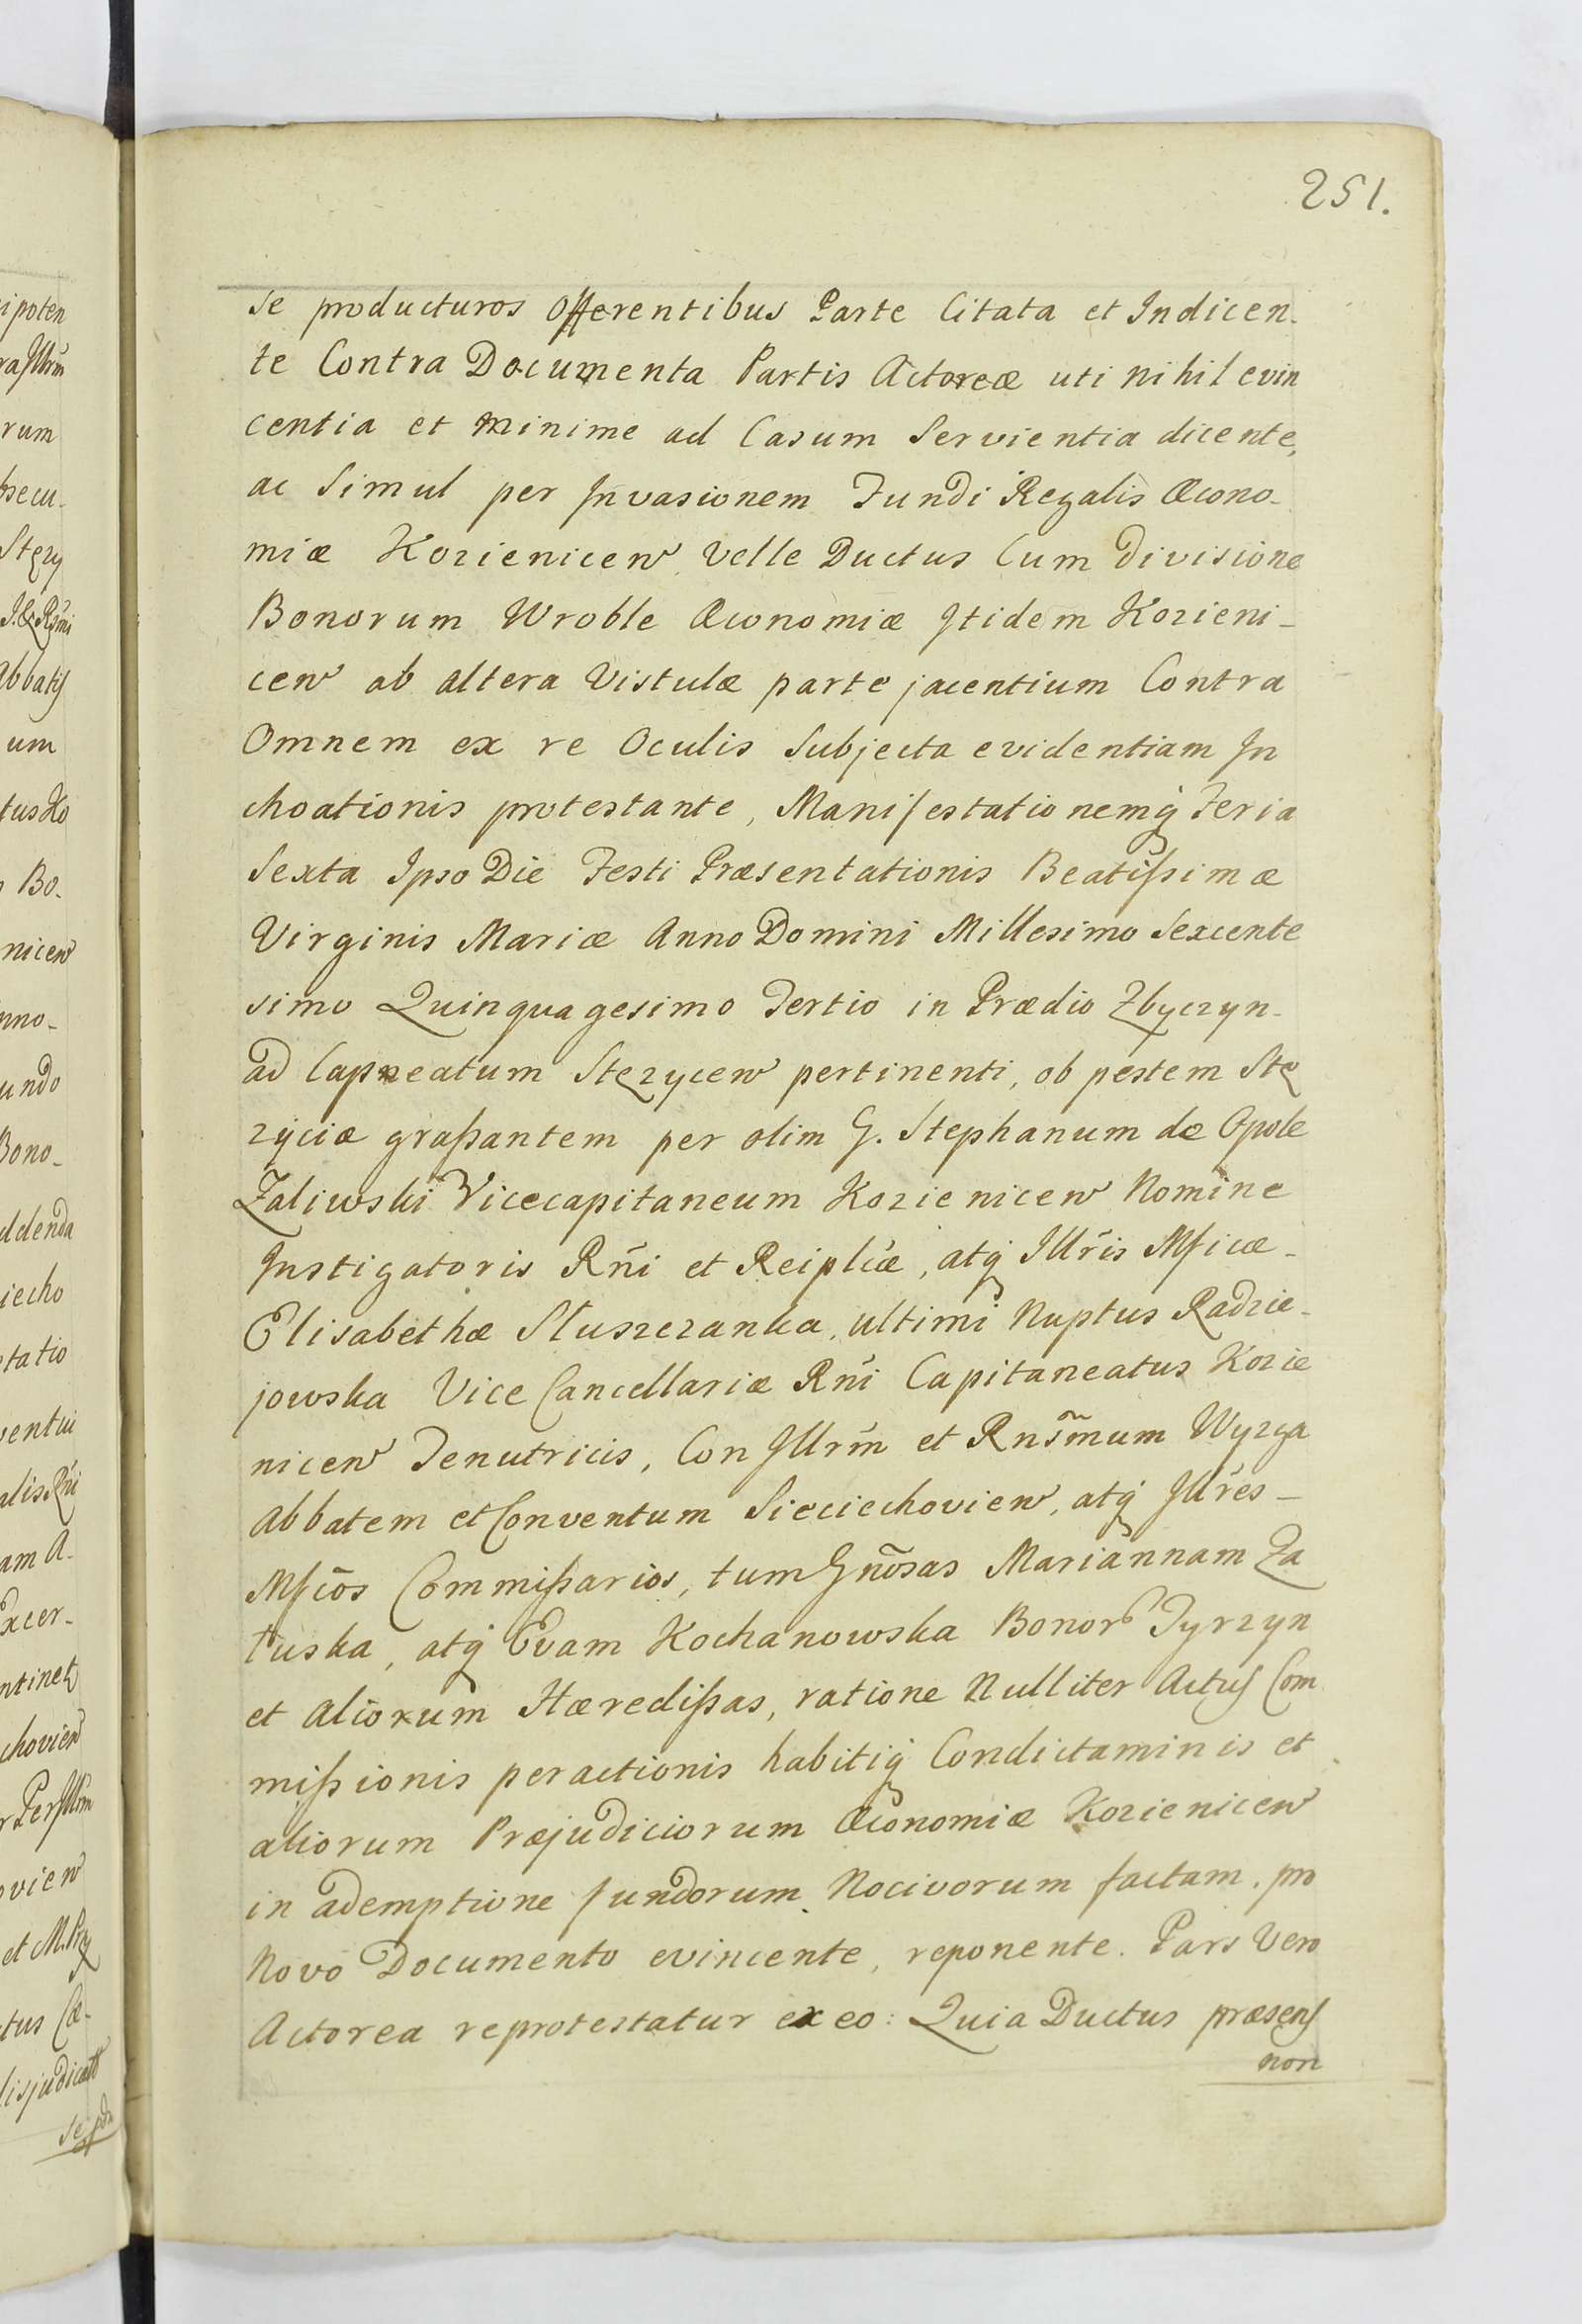 251.
se producturos offerentibus Parte Citata et Indicen-
te Contra Documenta Partis Actoreæ uti nihil evin
centia et minime ad Casum Servientia dicente,
ac Simul per Invasionem Fundi Regalis Œcono-
miæ Kozienicen velle Ductus Cum divisione
Bonorum Wroble Œconomiæ Itidem Kozieni-
cen ab altera Vistulæ parte jacentium Contra
Omnem ex re Oculis Subjecta evidentiam In
choationis protestante, Manifestationemq̃ Feria
Sexta Ipso Die Festi Præsentationis Beatissimæ
Virginis Mariæ Anno Domini Millesimo Sexcente
simo Quinquagesimo Tertio in Prædio Zbyczyn-
ad Capneatum Stęzycen pertinenti, ob pestem Stę
zyciæ grassantem per olim G. Stephanum de Opole
Zaliwski Vicecapitaneum Kozienicen Nomine
Instigatoris Rñi et Reiplcæ, atq̃ Illris Mficæ-
Elisabethæ Słuszczanka, ultimi Nuptus Radzie-
jowska Vice Cancellariæ Rñi Capitaneatus Kozie
nicen Tenutricis, Con Illrm et Rnsm̃um Wyzga
Abbatem et Conventum Sieciechovien, atq̃ Illres-
Mficõs Commissarios, tum Gnõsas Mariannam Za
łuska, atq̃ Evam Kochanowska Bonor Tyrzyn
et aliorum Hæredissas, ratione Nulliter Actus Com
missionis peractionis habitiq̃ Condictaminis et
aliorum Præjudiciorum Œconomiæ Kozienicen
in ademptione fundorum Nocivorum factam, pro
Novo Documento evincente, reponente. Pars Vero
Actorea reprotestatur ex eo: Quia Ductus præsens
non
ipoten
rum
Stęzy
Abbatis
um
Bo-
nicen
undo
Bono-
ddenda
iecho
tatio
ventui
alis Rñi
am A-
chovien
ovien
tus Cæ-